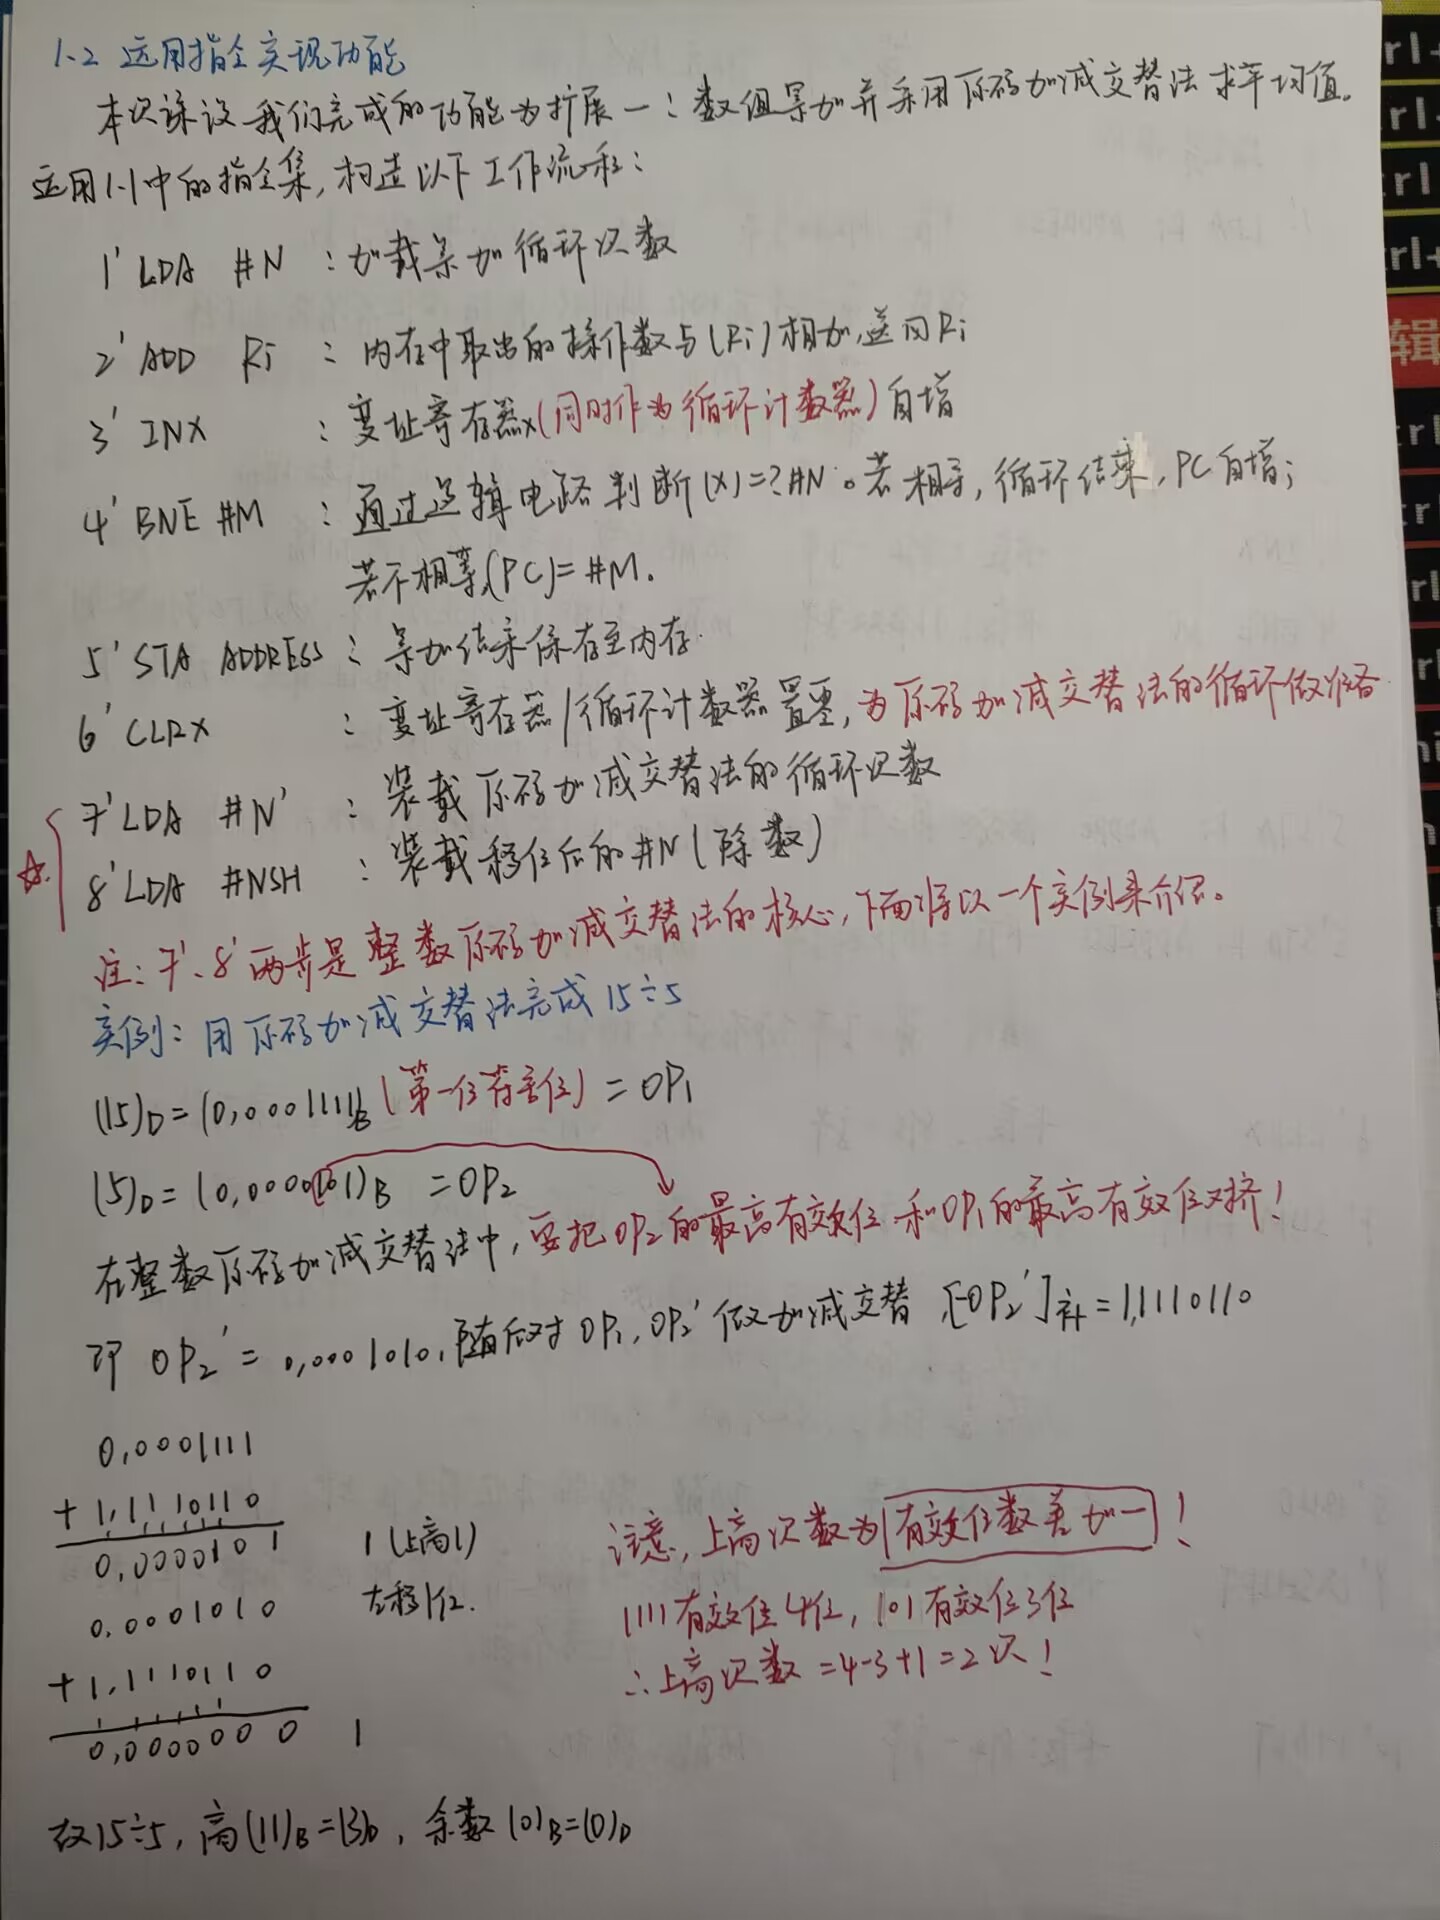 1.2 运用指令实现功能
本次课设我们完成的功能为扩展一：数组累加并采用原码加减交替法求平均值。
运用1.1中的指令集，构造以下工作流程：
1' LDA #N ：加载累加循环次数
2' ADD Ri ：内存中取出的操作数与(Ri)相加，送回Ri
3' INX ：变址寄存器x(同时作为循环计数器)自增
4' BNE #M ：通过逻辑电路判断(X)=?#N。若相等，循环结束，PC自增；
若不相等，(PC)=#M。
5' STA ADDRESS：累加结果保存至内存.
6' CLRX ：变址寄存器/循环计数器置零，为原码加减交替法的循环做准备.
7' LDA #N' ：装载原码加减交替法的循环次数
8' LDA #NSH ：装载移位后的#N(除数)
注：7'、8'两步是整数原码加减交替法的核心，下面将以一个实例来介绍。
实例：用原码加减交替法完成15÷5
(15)D=(0,0001111)B(第一位符号位)=OP1
(5)D=(0,0000101)B =OP2
在整数原码加减交替法中，要把OP2的最高有效位和OP1的最高有效位对齐！
即 OP2'=0,0001010，随后对OP1，OP2'做加减交替，[-OP2']补=1,1110110
0,0001111
+1,1110110
0,0000101 1(上商1)
0,0001010 左移1位.
+1,1110110
0,0000000 1
注意，上商次数为有效位数差加一！
1111有效位4位，101有效位3位
∴上商次数=4-3+1=2次！
故15÷5，商(11)B=(3)D，余数(0)B=(0)D